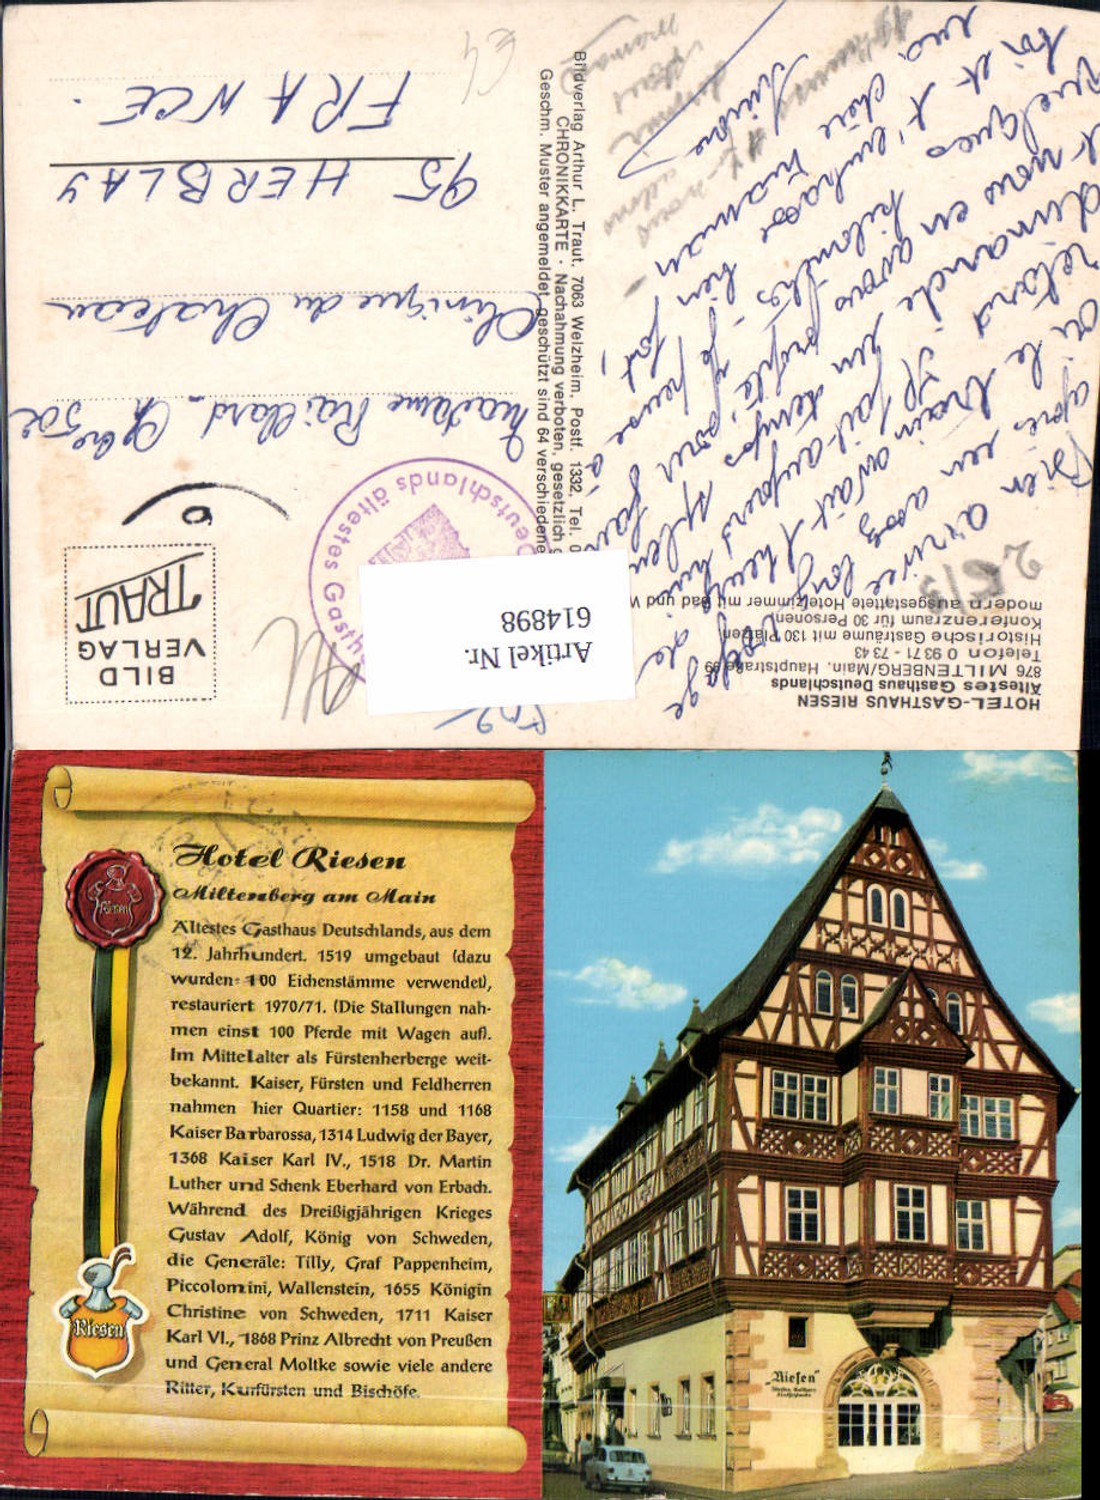 Hotel Riesen
Miltenberg am Main
Ältestes Gasthaus Deutschlands, aus dem
12. Jahrhundert. 1519 umgebaut (dazu
wurden 100 Eichenstämme verwendet),
restauriert 1970/71. (Die Stallungen nah-
men einst 100 Pferde mit Wagen auf).
Im Mittelalter als Fürstenherberge weit-
bekannt. Kaiser, Fürsten und Feldherren
nahmen hier Quartier: 1158 und 1168
Kaiser Barbarossa, 1314 Ludwig der Bayer,
1368 Kaiser Karl IV., 1518 Dr. Martin
Luther und Schenk Eberhard von Erbach.
Während des Dreißigjährigen Krieges
Gustav Adolf, König von Schweden,
die Generäle: Tilly, Graf Pappenheim,
Piccolomini, Wallenstein, 1655 Königin
Christine von Schweden, 1711 Kaiser
Karl VI., 1868 Prinz Albrecht von Preußen
und General Moltke sowie viele andere
Ritter, Kurfürsten und Bischöfe.
Riesen
Riesen
„Riesen"
HOTEL-GASTHAUS RIESEN
Ältestes Gasthaus Deutschlands
876 MILTENBERG/Main, Hauptstraße 99
Telefon 0 93 71 - 73 43
Historische Gasträume mit 130 Plätzen
Konferenzraum für 30 Personen
modern ausgestattete Hotelzimmer mit Bad und W
Artikel Nr.
614898
BILD
VERLAG
TRAUT
Deutschlands ältestes Gasth
Bildverlag Arthur L. Traut, 7063 Welzheim, Postf. 1332, Tel. 0
CHRONIKKARTE · Nachahmung verboten, gesetzlich g
Geschm. Muster angemeldet, geschützt sind 64 verschiedene
Madame Raillard - Chbre 502
Clinique du Chateau
95 HERBLAY
FRANCE.
Bien arrivée
après un
voyage
ou le train avait 1 heure de
retard
dimanche
et nous en avons profité pour
quelques kilomètres
toi et t'embrasse bien fort,
ma chère maman
Simone